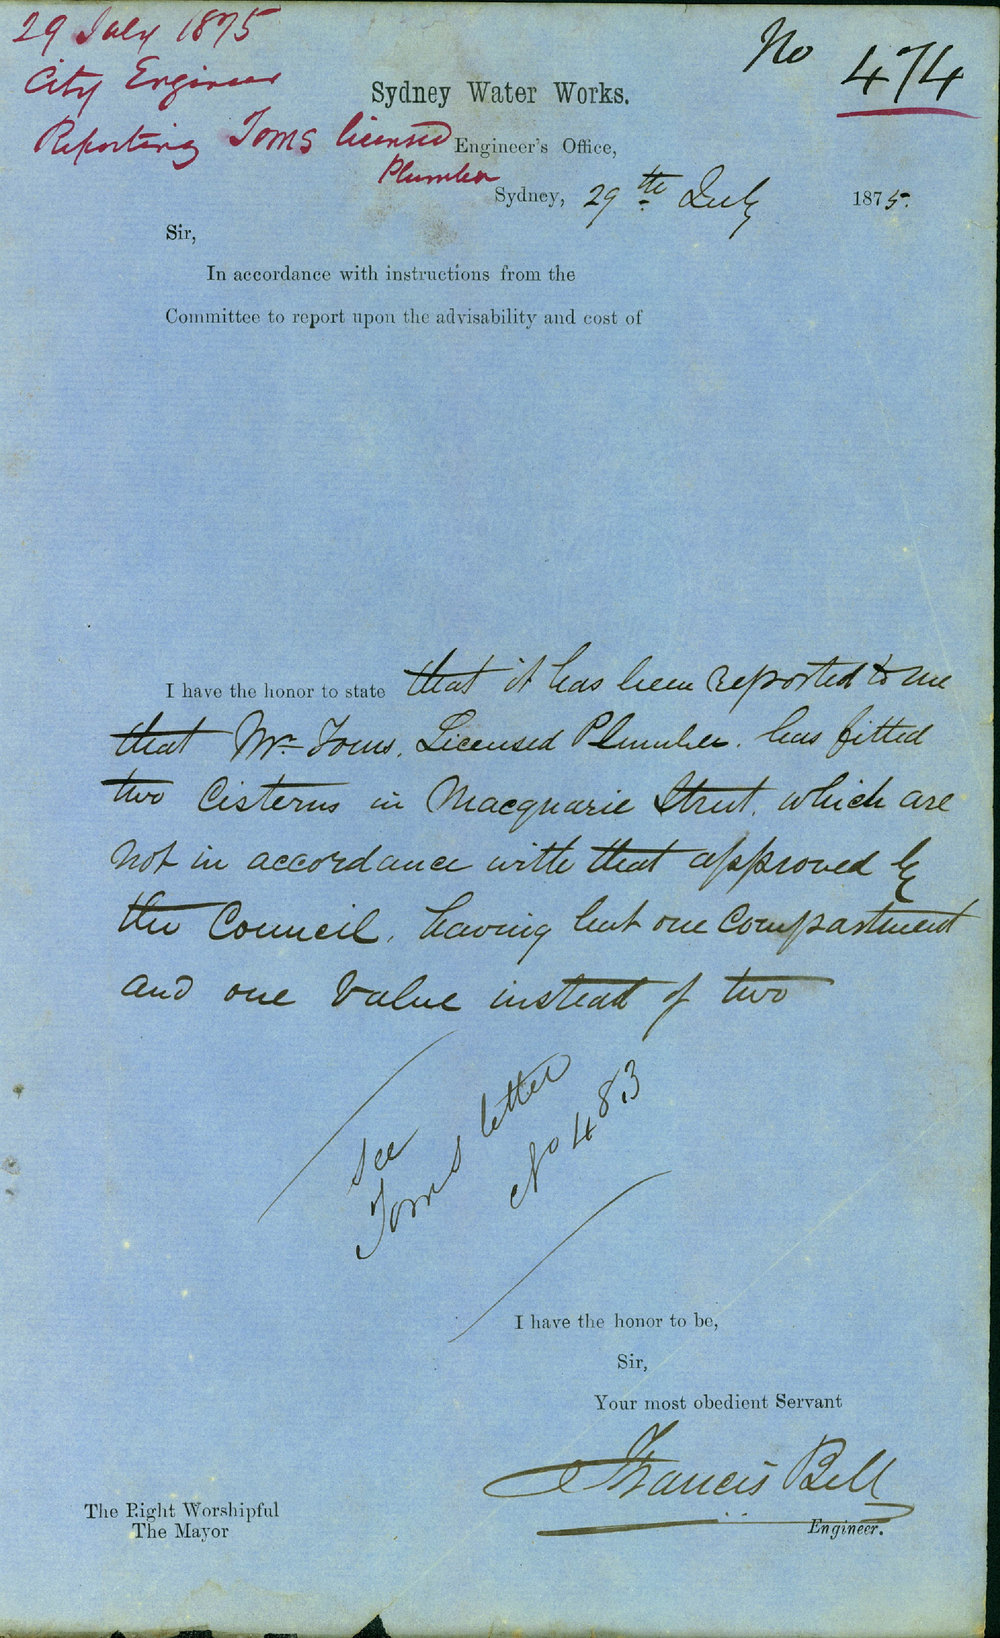 29 July 1875
City Engineer
Reporting Toms licensed
Plumber
No 474
Sydney Water Works.
Engineer's Office,
Sydney, 29th July 1875.
Sir,
In accordance with instructions from the
Committee to report upon the advisability and cost of
I have the honor to state that it has been reported to me
that Mr Toms, Licensed Plumber, has fitted
two Cisterns in Macquarie Street, which are
not in accordance with that approved by
the Council, having but one Compartment
and one Valve instead of two
See
Toms letter
No 483
I have the honor to be,
Sir,
Your most obedient Servant
Francis Bell
Engineer.
The Right Worshipful
The Mayor